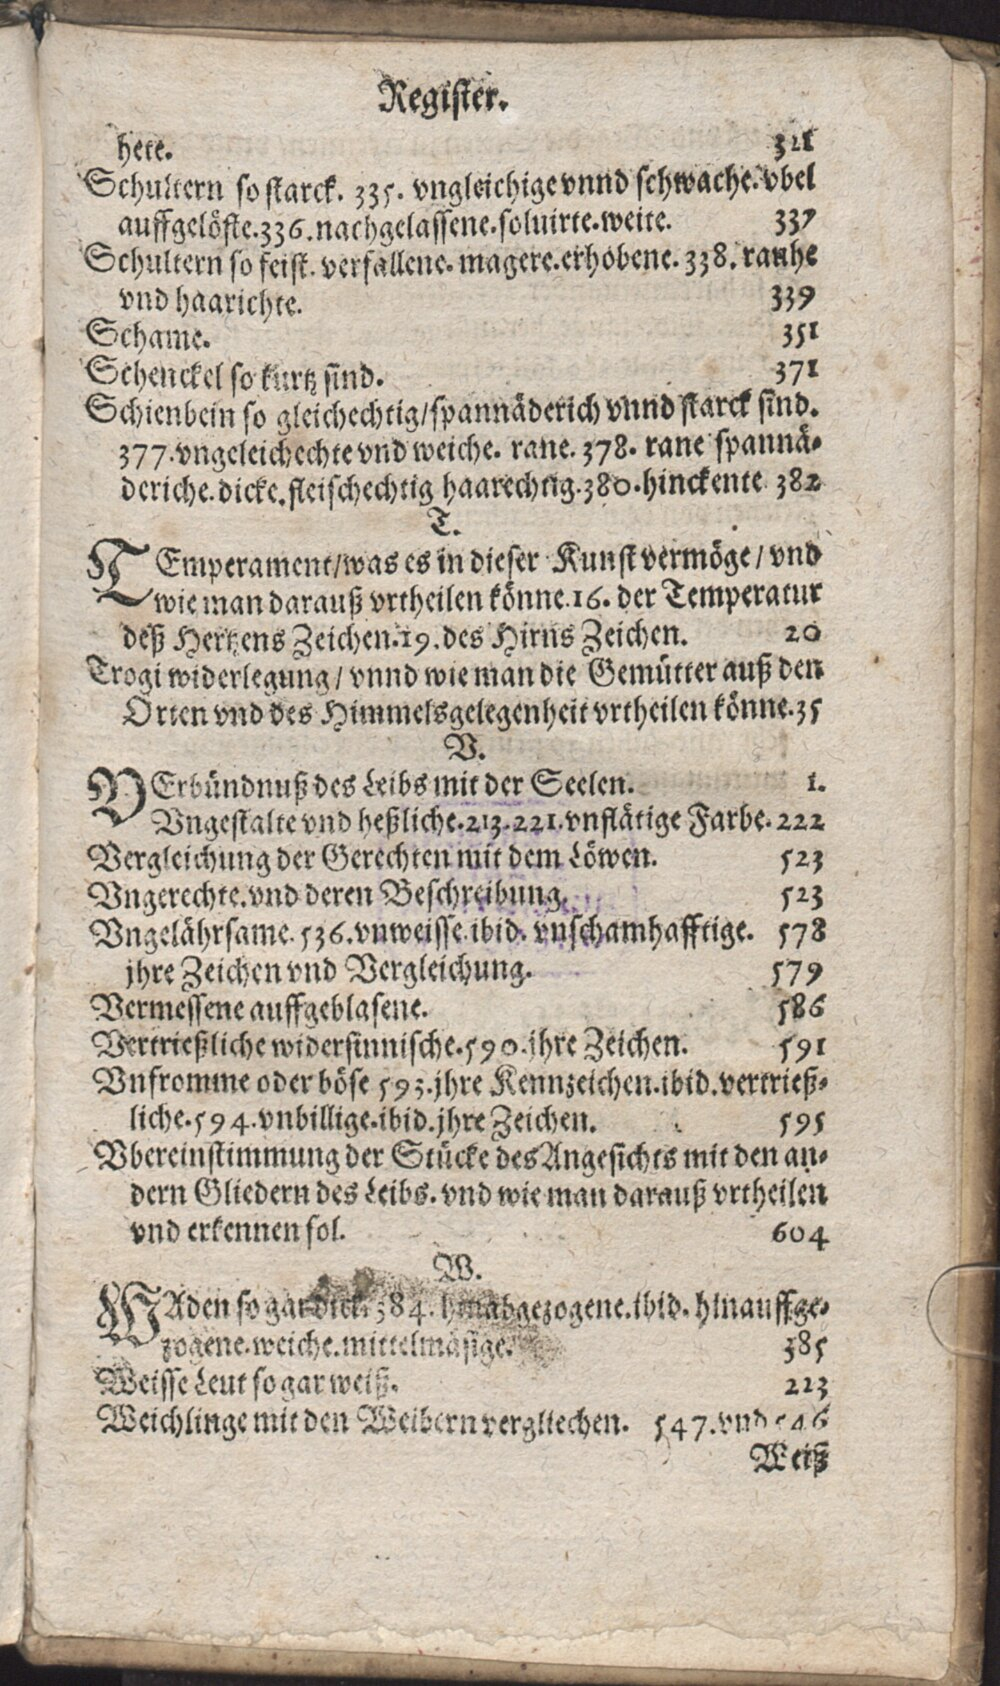 Register.
here. 321
Schultern so starck. 335. vngleichige vnnd schwache. vbel
auffgelöste. 336. nachgelassene. soluirte. weite. 337
Schultern so feist. verfallene. magere. erhobene. 338. rauhe
vnd haarichte. 339
Schame. 351
Schenckel so kurtz sind. 371
Schienbein so gleichechtig/ spannäderich vnnd starck sind.
377. vngeleichechte vnd weiche. rane. 378. rane spannä-
deriche. dicke. fleischechtig haarechtig. 380. hinckente 382
T.
TEmperament/ was es in dieser Kunst vermöge/ vnd
wie man darauß vrtheilen könne. 16. der Temperatur
deß Hertzens Zeichen. 19. des Hirns Zeichen. 20
Trogi widerlegung/ vnnd wie man die Gemütter auß den
Orten vnd des Himmelsgelegenheit vrtheilen könne. 35
V.
VErbündnuß des Leibs mit der Seelen. 1.
Vngestalte vnd heßliche. 213. 221. vnflätige Farbe. 222
Vergleichung der Gerechten mit dem Löwen. 523
Vngerechte. vnd deren Beschreibung. 523
Vngelährsame. 536. vnweisse. ibid. vnschamhafftige. 578
jhre Zeichen vnd Vergleichung. 579
Vermessene auffgeblasene. 586
Vertrießliche widersinnische. 590. jhre Zeichen. 591
Vnfromme oder böse 593. jhre Kennzeichen. ibid. vertrieß-
liche. 594. vnbillige. ibid. jhre Zeichen. 595
Vbereinstimmung der Stücke des Angesichts mit den an-
dern Gliedern des Leibs. vnd wie man darauß vrtheilen
vnd erkennen sol. 604
W.
WAden so gar dick. 384. hinabgezogene. ibid. hinauffge-
zogene. weiche. mittelmäsige. 385
Weisse Leut so gar weiß. 223
Weichlinge mit den Weibern vergliechen. 547. vnd 546
Weiß